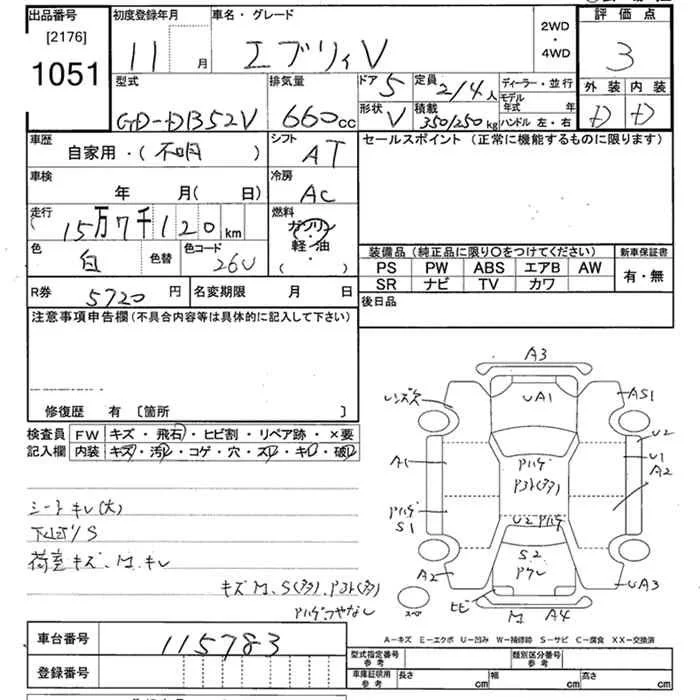 出品番号 初度登録年月 車名・グレード 2WD・4WD 評価点
[2176] 11 月 エブリィV 3
1051
型式 排気量 ドア 5 定員 2/4人 ディーラー・並行 外装 内装
GD-DB52V 660cc 形状 V 積載 350/250kg モデル年式 年 D D
ハンドル 左・右
車歴 シフト セールスポイント(正常に機能するものに限ります)
自家用・(不明) AT
車検 冷房
年 月(日) AC
走行 燃料
15万7千120km ガソリン
色 色替 色コード 軽・油
白 26U (・)
装備品(純正品に限り〇をつけてください) 新車保証書
PS PW ABS エアB AW 有・無
SR ナビ TV カワ
R券 5720円 名変期限 月 日 後日品
注意事項申告欄(不具合内容等は具体的に記入して下さい)
修復歴 有 [箇所 ]
検査員 FW キズ・飛石・ヒビ割・リペア跡・×要
記入欄 内装 キズ・汚レ・コゲ・穴・スレ・キレ・破レ
シートキレ(大)
下廻りS
荷室キズ、M、キレ
キズM、S(多)、Pヨト(多)
Pハゲツヤなし
A3
UA1
レンズキズ
AS1
U2
U1
A2
A1
Pハゲ
Pヨト(多)
Pハゲ
S1
U2 Pハゲ
S2
PクレA2
UA3
ヒビ
M A4
スペア
A－キズ E－エクボ U－凹み W－補修跡 S－サビ C－腐食 XX－交換済
車台番号 115783
登録番号
型式指定番号 参考 類別区分番号 参考
車庫証明用 参考 長さ cm 幅 cm 高さ cm